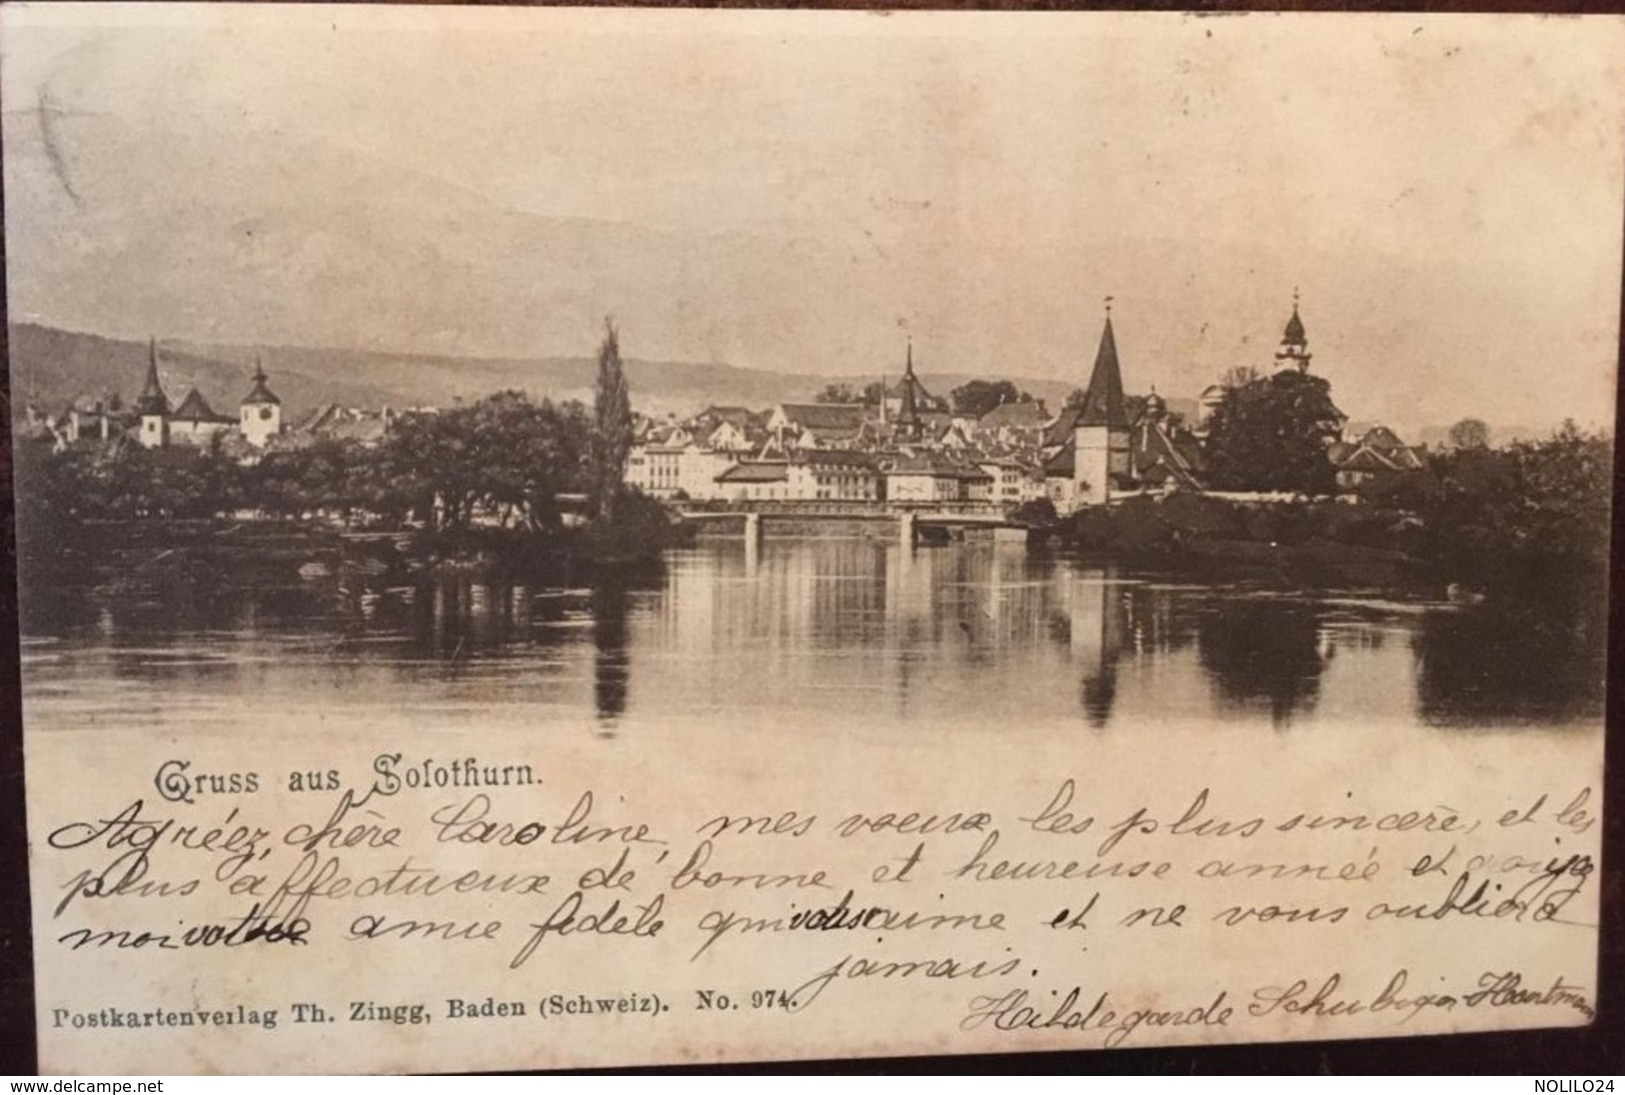 Gruss aus Solothurn.
Agréez, chère Caroline, mes voeux les plus sincère, et les
plus affectueux de bonne et heureuse année et
moi votre amie fidèle qui vous aime et ne vous oubliera
jamais.
Hildegarde Schubiger-Hartmann
Postkartenverlag Th. Zingg, Baden (Schweiz). No. 974.
www.delcampe.net
NOLILO24